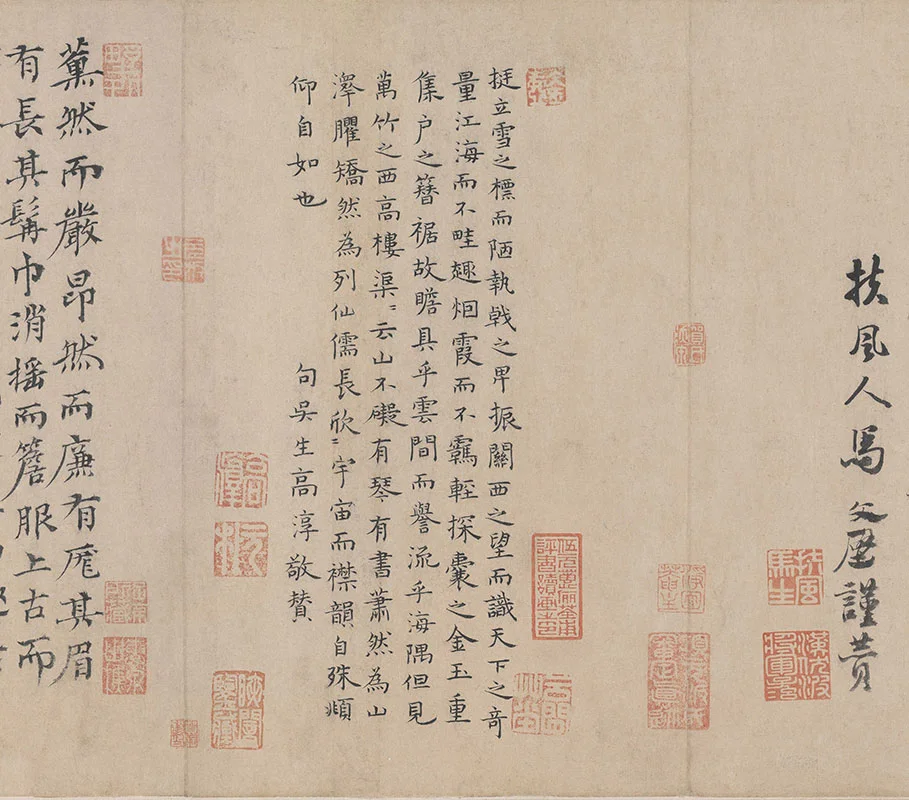 扶風人馬文璧謹贊
扶風馬生
挺立雪之標而陋執戟之卑振關西之望而識天下之奇
量江海而不畦趣烟霞而不羈輕探囊之金玉重
集户之簪裾故瞻具乎雲間而譽流乎海隅但見
萬竹之西高樓渠〻云山不礙有琴有書蕭然為山
澤臞矯然為列仙儒長欣〻宇宙而襟韻自殊頫
仰自如也 句吳生高淳敬贊
薰然而嚴昂然而廉有厖其眉
有長其髯巾消搖而簷服上古而